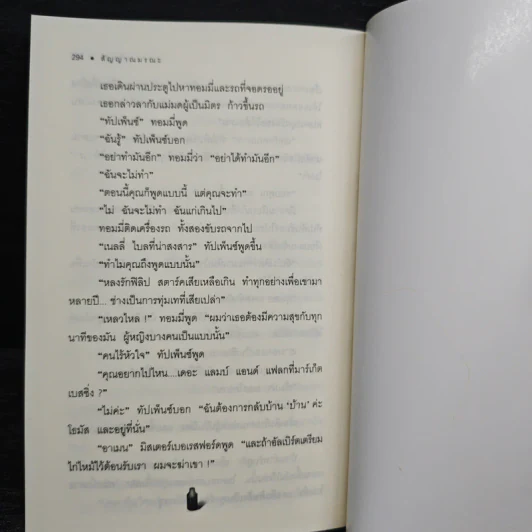 294 • สัญญาณมรณะ
เธอเดินผ่านประตูไปหาทอมมี่และรถที่จอดรออยู่
เธอกล่าวลากับแม่มดผู้เป็นมิตร ก้าวขึ้นรถ
“ทัปเพ็นซ์” ทอมมี่พูด
“ฉันรู้” ทัปเพ็นซ์บอก
“อย่าทำมันอีก” ทอมมี่ว่า “อย่าได้ทำมันอีก”
“ฉันจะไม่ทำ”
“ตอนนี้คุณก็พูดแบบนี้ แต่คุณจะทำ”
“ไม่ ฉันจะไม่ทำ ฉันแก่เกินไป”
ทอมมี่ติดเครื่องรถ ทั้งสองขับรถจากไป
“เนลลี่ ไบลที่น่าสงสาร” ทัปเพ็นซ์พูดขึ้น
“ทำไมคุณถึงพูดแบบนั้น”
“หลงรักฟิลิป สตาร์คเสียเหลือเกิน ทำทุกอย่างเพื่อเขามา
หลายปี... ช่างเป็นการทุ่มเทที่เสียเปล่า”
“เหลวไหล !” ทอมมี่พูด “ผมว่าเธอต้องมีความสุขกับทุก
นาทีของมัน ผู้หญิงบางคนเป็นแบบนั้น”
“คนไร้หัวใจ” ทัปเพ็นซ์พูด
“คุณอยากไปไหน...เดอะ แลมบ์ แอนด์ แฟลกที่มาร์เก็ต
เบสซิ่ง ?”
“ไม่ค่ะ” ทัปเพ็นซ์บอก “ฉันต้องการกลับบ้าน ‘บ้าน’ ค่ะ
โธมัส และอยู่ที่นั่น”
“อาเมน” มิสเตอร์เบอเรสฟอร์ดพูด “และถ้าอัลเบิร์ตเตรียม
ไก่ไหม้ไว้ต้อนรับเรา ผมจะฆ่าเขา !”